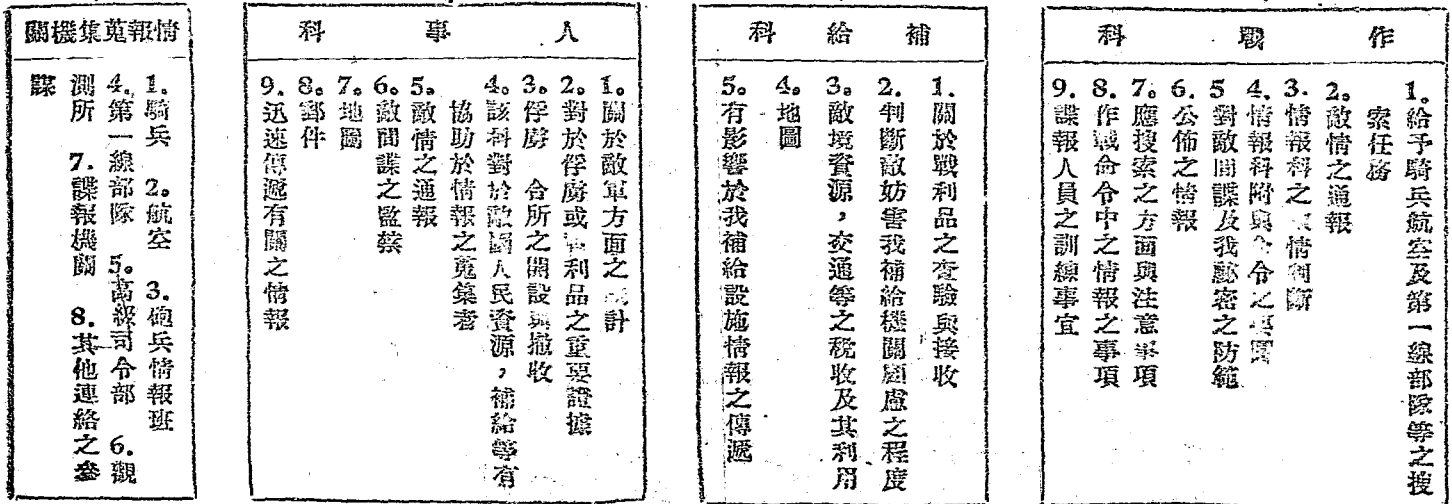 作戰科
1。給予騎兵航空及第一線部隊等之搜
索任務
2。敵情之通報
3.情報科之情判斷
4.情報科附與命令之
5對敵間諜及我秘密之防範
6.公佈之情報
7。應搜索之方面與注意事項
8.作戰命令中之情報之事項
9.諜報人員之訓練事宜
補給科
1.關於戰利品之查驗與接收
2.判斷敵妨害我補給機關顧慮之程度
3。敵境資源，交通等之稅收及其利用
4。地圖
5。有影響於我補給設施情報之傳遞
人事科
1。關於敵軍方面之計
2。對於俘虜或利品之重要證據
3。俘虜 令所之開設與撤收
4。該科對於敵國人民資源，補給等有
協助於情報之蒐集者
5。敵情之通報
6。敵間諜之監察
7。地圖
8。郵件
9.迅速傳遞有關之情報
情報蒐集機關
1.騎兵 2。航空 3.砲兵情報班
4。第一線部隊 5。高級司令部 6.觀
測所 7.諜報機關 8.其他連絡之參
謀